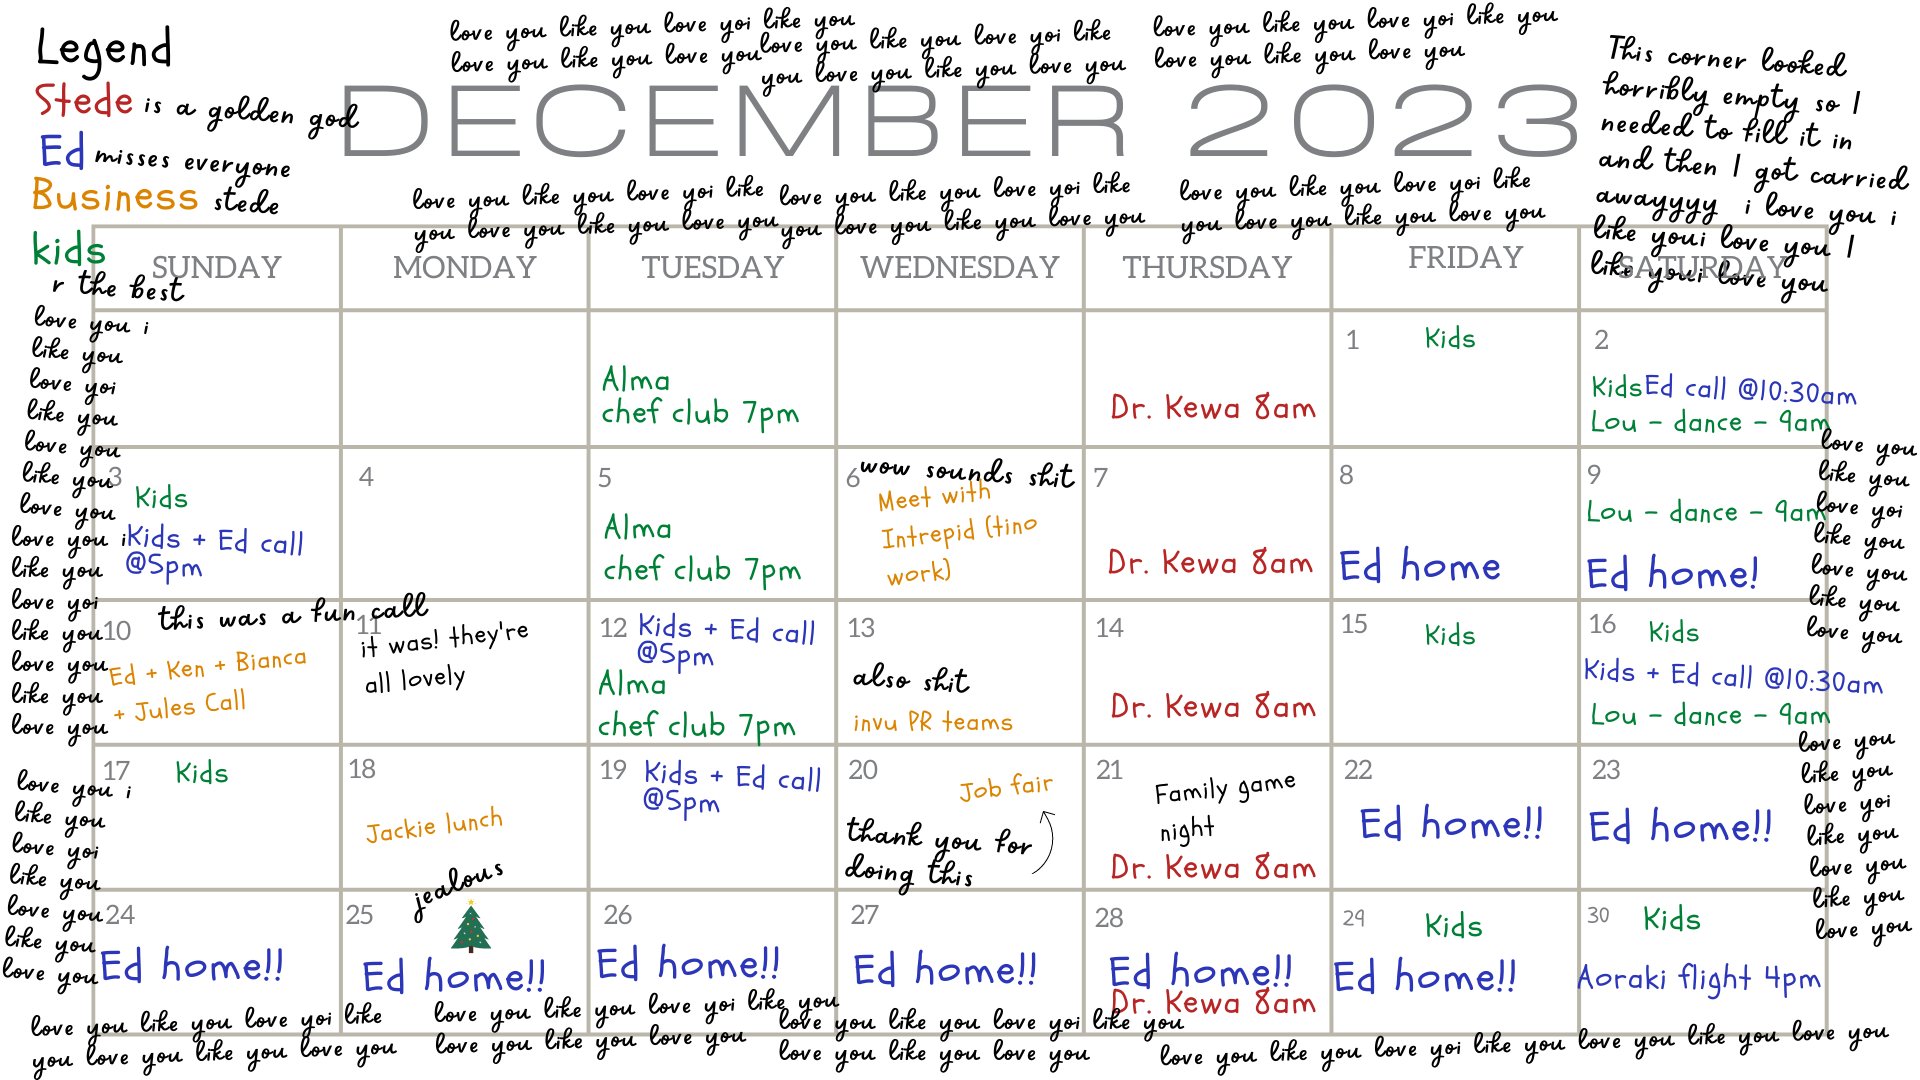 Legend
Stede is a golden god
Ed misses everyone
Business stede
kids
r the best
love you like you love yoi like you
love you like you love you
love you like you love yoi like
you love you like you love you
love you like you love yoi like you
love you like you love you
DECEMBER 2023
This corner looked
horribly empty so I
needed to fill it in
and then I got carried
awayyyy i love you i
like youi love you I
like youi love you
love you like you love yoi like
you love you like you love you
love you like you love yoi like
you love you like you love you
love you like you love yoi like
you love you like you love you
SUNDAY
MONDAY
TUESDAY
WEDNESDAY
THURSDAY
FRIDAY
SATURDAY
love you i
like you
love yoi
like you
love you
like you
love you
love you i
like you
love yoi
like you
love you
like you
love you
love you i
like you
love yoi
like you
love you
like you
love you
Alma
chef club 7pm
Dr. Kewa 8am
1 Kids
2
Kids Ed call @10:30am
Lou - dance - 9am
3
Kids
Kids + Ed call
@5pm
4
5
Alma
chef club 7pm
6 wow sounds shit
Meet with
Intrepid (tino
work)
7
Dr. Kewa 8am
8
Ed home
9
Lou - dance - 9am
Ed home!
love you
like you
love yoi
like you
love you
like you
love you
this was a fun call
10
Ed + Ken + Bianca
+ Jules Call
11
it was! they're
all lovely
12 Kids + Ed call
@5pm
Alma
chef club 7pm
13
also shit
invu PR teams
14
Dr. Kewa 8am
15 Kids
16 Kids
Kids + Ed call @10:30am
Lou - dance - 9am
love you
like you
love yoi
like you
love you
like you
love you
17 Kids
18
Jackie lunch
jealous
19 Kids + Ed call
@5pm
20 Job fair
thank you for
doing this
21 Family game
night
Dr. Kewa 8am
22
Ed home!!
23
Ed home!!
24
Ed home!!
25
Ed home!!
26
Ed home!!
27
Ed home!!
28
Ed home!!
Dr. Kewa 8am
29 Kids
Ed home!!
30 Kids
Aoraki flight 4pm
love you like you love yoi like
you love you like you love you
love you like you love yoi like you
love you like you love you
love you like you love yoi like you
love you like you love you
love you like you love yoi like you love you like you love you